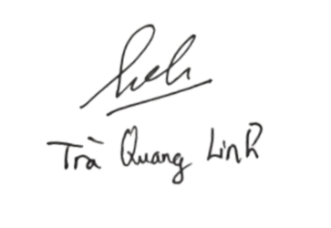 Trà Quang Linh